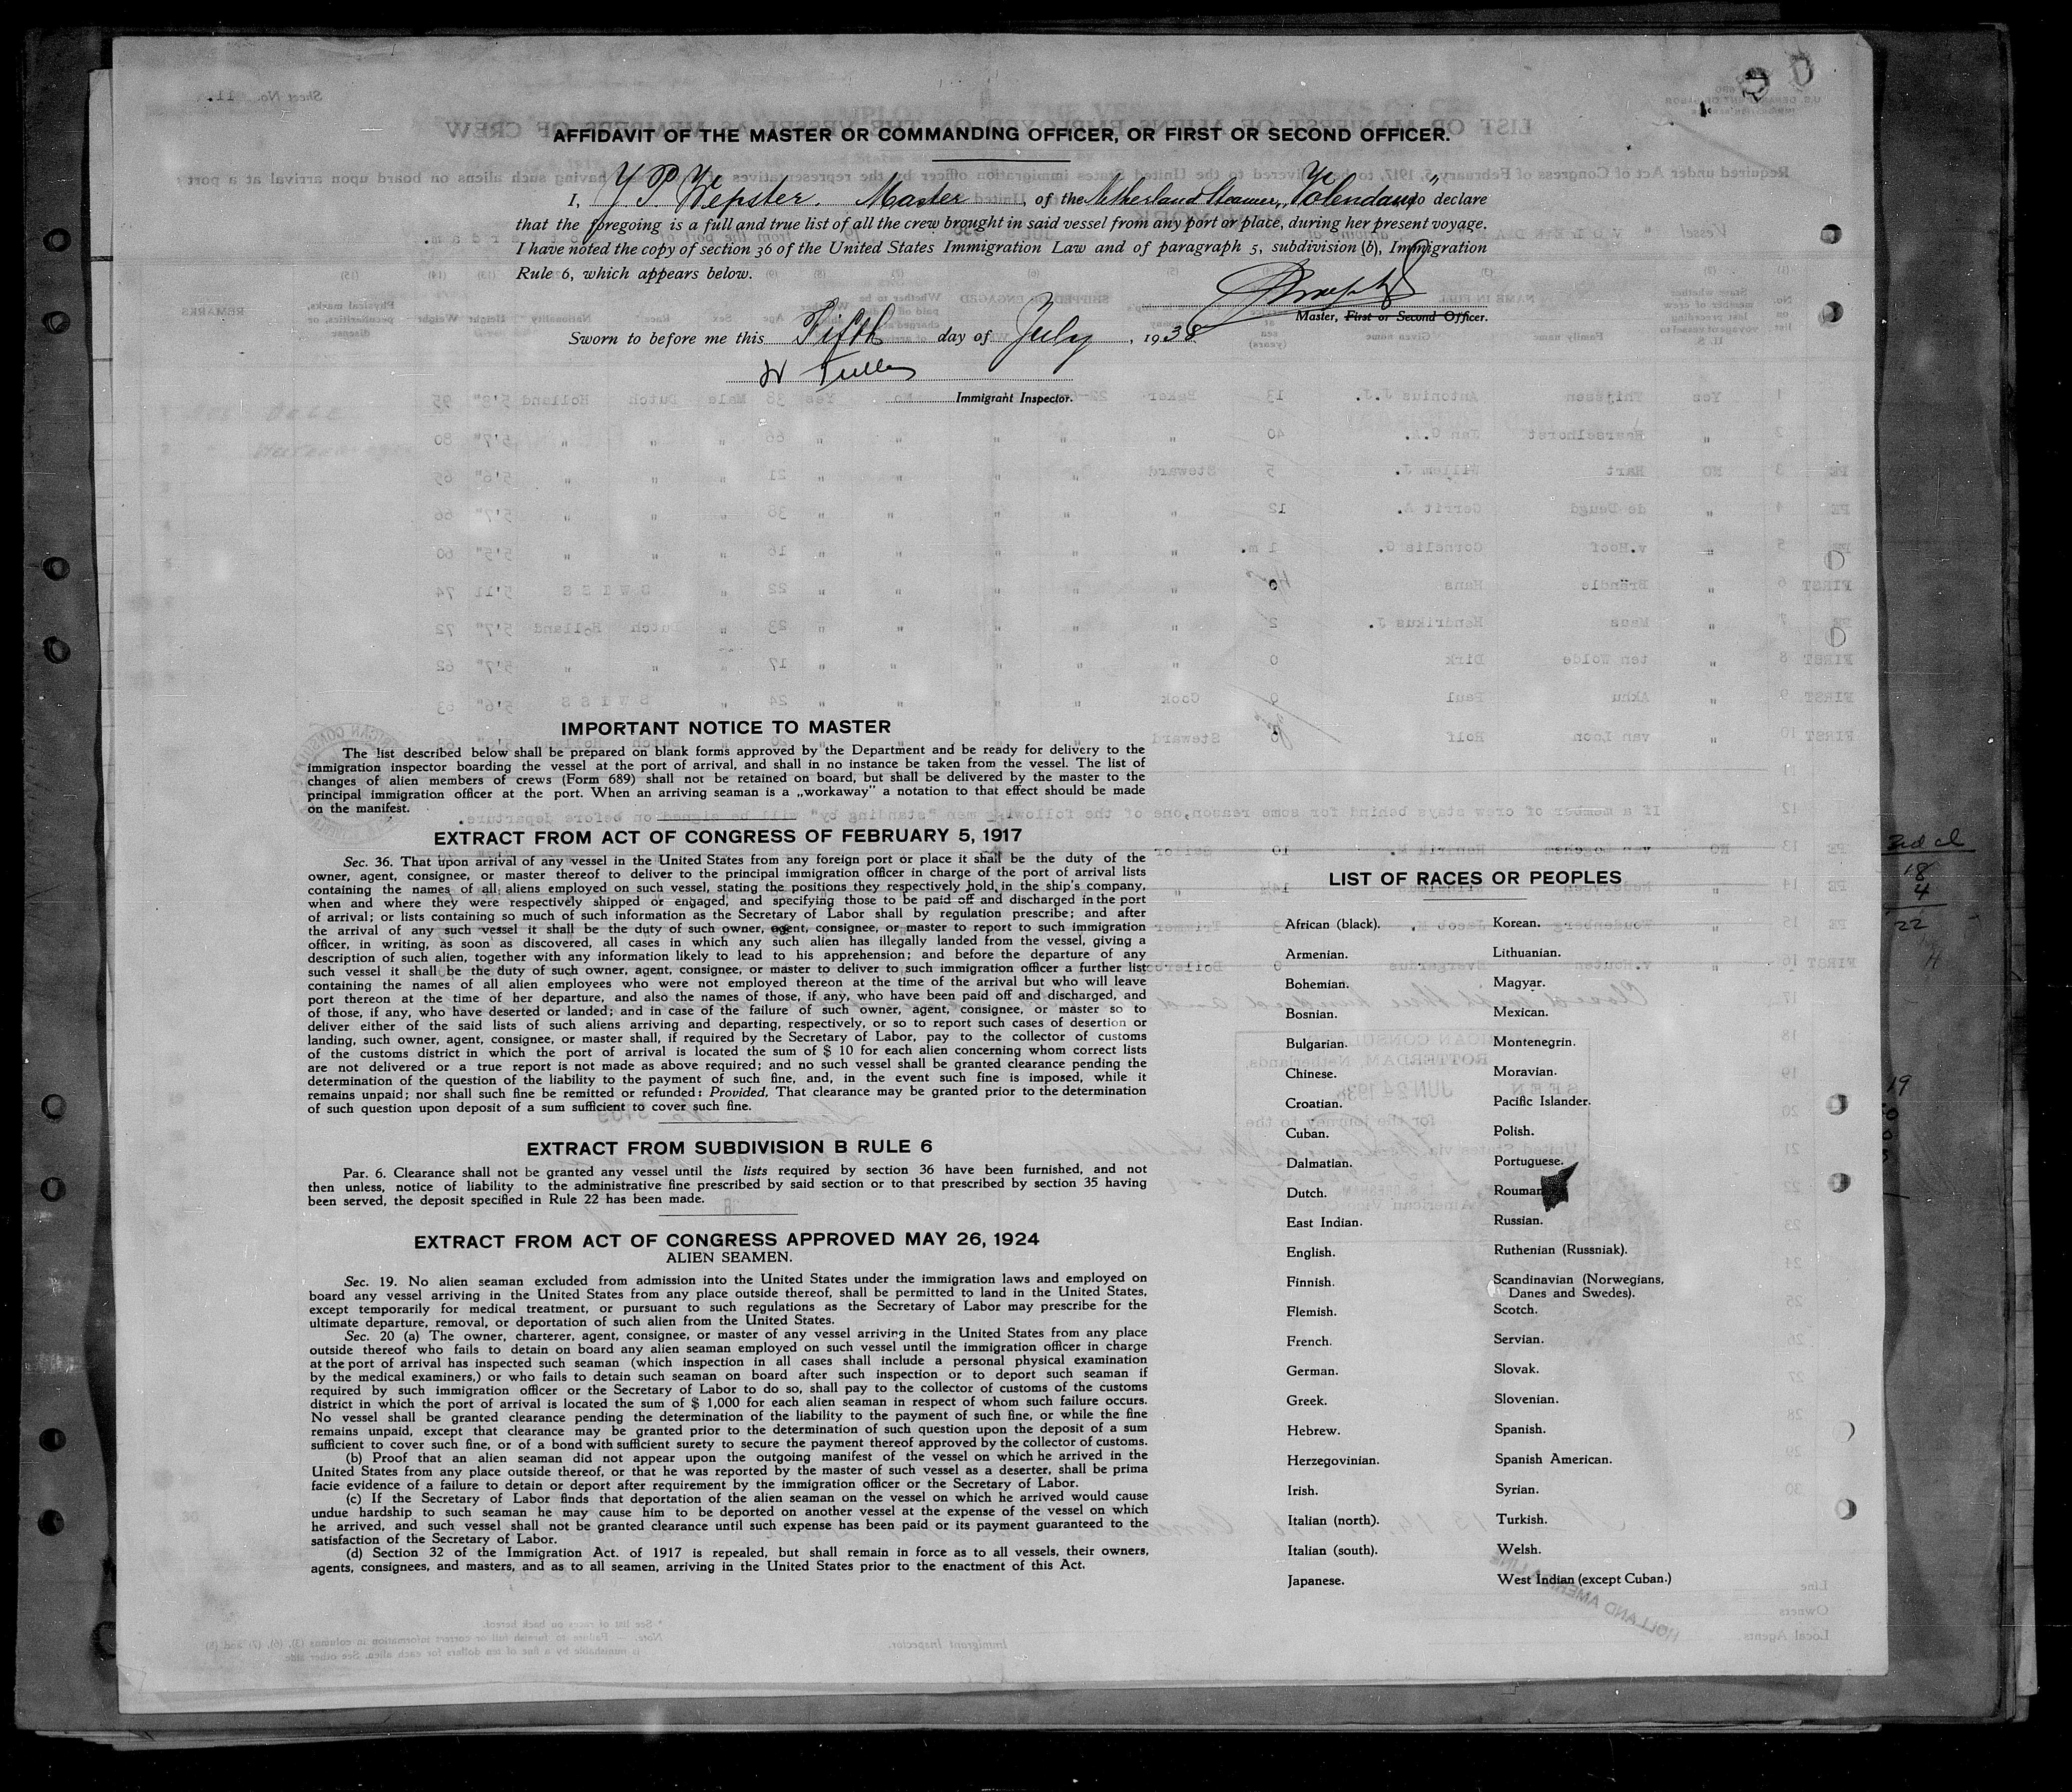 AFFIDAVIT OF THE MASTER OR COMMANDING OFFICER, OR FIRST OR SECOND OFFICER.
I, Y P Wepster. Master, of the Netherland Steamer „Volendam" do declare
that the foregoing is a full and true list of all the crew brought in said vessel from any port or place, during her present voyage.
I have noted the copy of section 36 of the United States Immigration Law and of paragraph 5, subdivision (b), Immigration
Rule 6, which appears below.
Master, First or Second Officer.
Sworn to before me this Fifth day of July, 1938
Immigrant Inspector.
IMPORTANT NOTICE TO MASTER
The list described below shall be prepared on blank forms approved by the Department and be ready for delivery to the
immigration inspector boarding the vessel at the port of arrival, and shall in no instance be taken from the vessel. The list of
changes of alien members of crews (Form 689) shall not be retained on board, but shall be delivered by the master to the
principal immigration officer at the port. When an arriving seaman is a „workaway" a notation to that effect should be made
on the manifest.
EXTRACT FROM ACT OF CONGRESS OF FEBRUARY 5, 1917
Sec. 36. That upon arrival of any vessel in the United States from any foreign port or place it shall be the duty of the
owner, agent, consignee, or master thereof to deliver to the principal immigration officer in charge of the port of arrival lists
containing the names of all aliens employed on such vessel, stating the positions they respectively hold in the ship's company,
when and where they were respectively shipped or engaged, and specifying those to be paid off and discharged in the port
of arrival; or lists containing so much of such information as the Secretary of Labor shall by regulation prescribe; and after
the arrival of any such vessel it shall be the duty of such owner, agent, consignee, or master to report to such immigration
officer, in writing, as soon as discovered, all cases in which any such alien has illegally landed from the vessel, giving a
description of such alien, together with any information likely to lead to his apprehension; and before the departure of any
such vessel it shall be the duty of such owner, agent, consignee, or master to deliver to such immigration officer a further list
containing the names of all alien employees who were not employed thereon at the time of the arrival but who will leave
port thereon at the time of her departure, and also the names of those, if any, who have been paid off and discharged, and
of those, if any, who have deserted or landed; and in case of the failure of such owner, agent, consignee, or master so to
deliver either of the said lists of such aliens arriving and departing, respectively, or so to report such cases of desertion or
landing, such owner, agent, consignee, or master shall, if required by the Secretary of Labor, pay to the collector of customs
of the customs district in which the port of arrival is located the sum of $ 10 for each alien concerning whom correct lists
are not delivered or a true report is not made as above required; and no such vessel shall be granted clearance pending the
determination of the question of the liability to the payment of such fine, and, in the event such fine is imposed, while it
remains unpaid; nor shall such fine be remitted or refunded: Provided, That clearance may be granted prior to the determination
of such question upon deposit of a sum sufficient to cover such fine.
EXTRACT FROM SUBDIVISION B RULE 6
Par. 6. Clearance shall not be granted any vessel until the lists required by section 36 have been furnished, and not
then unless, notice of liability to the administrative fine prescribed by said section or to that prescribed by section 35 having
been served, the deposit specified in Rule 22 has been made.
EXTRACT FROM ACT OF CONGRESS APPROVED MAY 26, 1924
ALIEN SEAMEN.
Sec. 19. No alien seaman excluded from admission into the United States under the immigration laws and employed on
board any vessel arriving in the United States from any place outside thereof, shall be permitted to land in the United States,
except temporarily for medical treatment, or pursuant to such regulations as the Secretary of Labor may prescribe for the
ultimate departure, removal, or deportation of such alien from the United States.
Sec. 20 (a) The owner, charterer, agent, consignee, or master of any vessel arriving in the United States from any place
outside thereof who fails to detain on board any alien seaman employed on such vessel until the immigration officer in charge
at the port of arrival has inspected such seaman (which inspection in all cases shall include a personal physical examination
by the medical examiners,) or who fails to detain such seaman on board after such inspection or to deport such seaman if
required by such immigration officer or the Secretary of Labor to do so, shall pay to the collector of customs of the customs
district in which the port of arrival is located the sum of $ 1,000 for each alien seaman in respect of whom such failure occurs.
No vessel shall be granted clearance pending the determination of the liability to the payment of such fine, or while the fine
remains unpaid, except that clearance may be granted prior to the determination of such question upon the deposit of a sum
sufficient to cover such fine, or of a bond with sufficient surety to secure the payment thereof approved by the collector of customs.
(b) Proof that an alien seaman did not appear upon the outgoing manifest of the vessel on which he arrived in the
United States from any place outside thereof, or that he was reported by the master of such vessel as a deserter, shall be prima
facie evidence of a failure to detain or deport after requirement by the immigration officer or the Secretary of Labor.
(c) If the Secretary of Labor finds that deportation of the alien seaman on the vessel on which he arrived would cause
undue hardship to such seaman he may cause him to be deported on another vessel at the expense of the vessel on which
he arrived, and such vessel shall not be granted clearance until such expense has been paid or its payment guaranteed to the
satisfaction of the Secretary of Labor.
(d) Section 32 of the Immigration Act. of 1917 is repealed, but shall remain in force as to all vessels, their owners,
agents, consignees, and masters, and as to all seamen, arriving in the United States prior to the enactment of this Act.
LIST OF RACES OR PEOPLES
African (black).
Armenian.
Bohemian.
Bosnian.
Bulgarian.
Chinese.
Croatian.
Cuban.
Dalmatian.
Dutch.
East Indian.
English.
Finnish.
Flemish.
French.
German.
Greek.
Hebrew.
Herzegovinian.
Irish.
Italian (north).
Italian (south).
Japanese.
Korean.
Lithuanian.
Magyar.
Mexican.
Montenegrin.
Moravian.
Pacific Islander.
Polish.
Portuguese.
Rouman
Russian.
Ruthenian (Russniak).
Scandinavian (Norwegians,
Danes and Swedes).
Scotch.
Servian.
Slovak.
Slovenian.
Spanish.
Spanish American.
Syrian.
Turkish.
Welsh.
West Indian (except Cuban.)
3rd cl
18
4
22
19